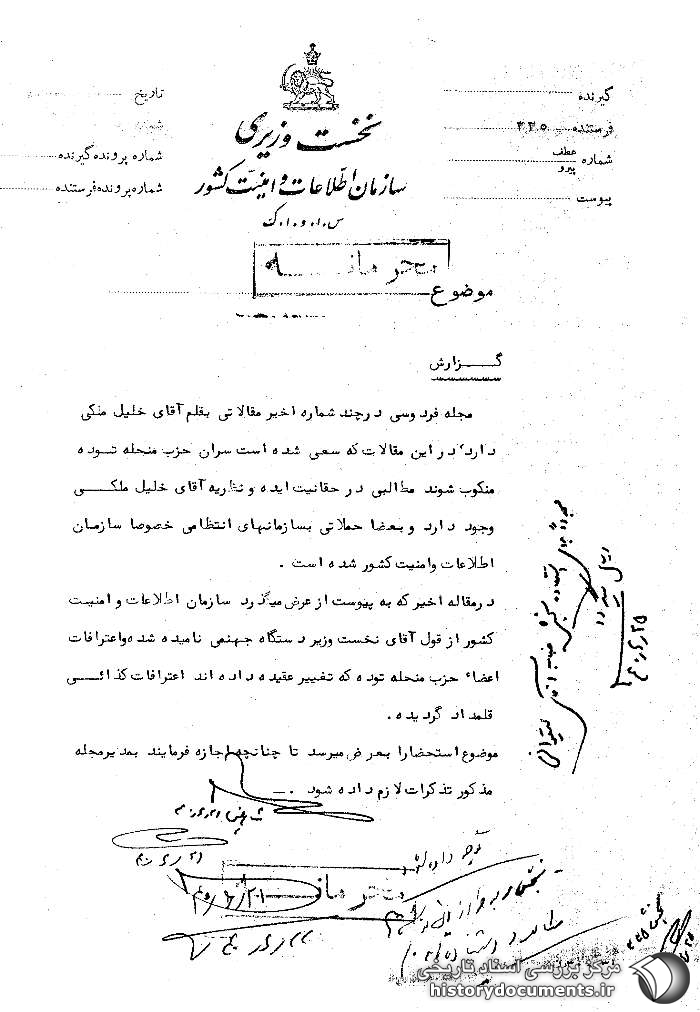 گیرنده
فرستنده ۳۳۵
شماره عطف
پیرو
پیوست
نخست وزیری
سازمان اطلاعات و امنیت کشور
س.ا.و.ا.ک
تاریخ
شماره
شماره پرونده گیرنده
شماره پرونده فرستنده
محرمانه
موضوع
گزارش
مجله فردوسی در چند شماره اخیر مقالاتی بقلم آقای خلیل ملکی
دارد در این مقالات که سعی شده است سران حزب منحله توده
منکوب شوند مطالبی در حقانیت ایده و نظریه آقای خلیل ملکی
وجود دارد و بعضا حملاتی بسازمانهای انتظامی خصوصا سازمان
اطلاعات وامنیت کشور شده است .
در مقاله اخیر که به پیوست از عرض میگذرد سازمان اطلاعات و امنیت
کشور از قول آقای نخست وزیر دستگاه جهنمی نامیده شده واعترافات
اعضاء حزب منحله توده که تغییر عقیده داده اند اعترافات کذائی
قلمداد گردیده .
موضوع استحضارا بعرض میرسد تا چنانچه اجازه فرمایند بمدیرمجله
مذکور تذکرات لازم داده شود .
توجه داده شود
محرمانه
مرکز بررسی اسناد تاریخی
historydocuments.ir